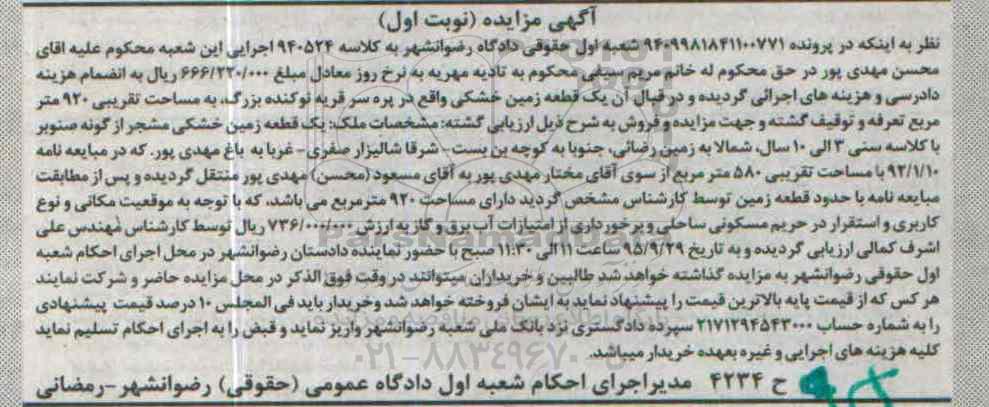 آگهی مزایده (نوبت اول)
نظر به اینکه در پرونده ۹۴۰۹۹۸۱۸۴۱۱۰۰۷۷۱ شعبه اول حقوقی دادگاه رضوانشهر به کلاسه ۹۴۰۵۲۴ اجرایی این شعبه محکوم علیه اقای
محسن مهدی پور در حق محکوم له خانم مریم سیفی محکوم به تادیه مهریه به نرخ روز معادل مبلغ ۶۶۶/۲۲۰/۰۰۰ ریال به انضمام هزینه
دادرسی و هزینه های اجرائی گردیده و در قبال آن یک قطعه زمین خشکی واقع در پره سر قریه نوکنده بزرگ، به مساحت تقریبی ۹۲۰ متر
مربع تعرفه و توقیف گشته و جهت مزایده و فروش به شرح ذیل ارزیابی گشته: مشخصات ملک: یک قطعه زمین خشکی مشجر از گونه صنوبر
با کلاسه سنی ۳ الی ۱۰ سال، شمالا به زمین رضائی، جنوبا به کوچه بن بست - شرقا شالیزار صفری - غربا به باغ مهدی پور. که در مبایعه نامه
۹۲/۱/۱۰ با مساحت تقریبی ۵۸۰ متر مربع از سوی آقای مختار مهدی پور به آقای مسعود (محسن) مهدی پور منتقل گردیده و پس از مطابقت
مبایعه نامه با حدود قطعه زمین توسط کارشناس مشخص گردید دارای مساحت ۹۲۰ متر مربع می باشد، که با توجه به موقعیت مکانی و نوع
کاربری و استقرار در حریم مسکونی ساحلی و برخورداری از امتیازات آب برق و گاز به ارزش ۷۳۶/۰۰۰/۰۰۰ ریال توسط کارشناس مهندس علی
اشرف کمالی ارزیابی گردیده و به تاریخ ۹۵/۹/۲۹ ساعت ۱۱ الی ۱۱:۳۰ صبح با حضور نماینده دادستان رضوانشهر در محل اجرای احکام شعبه
اول حقوقی رضوانشهر به مزایده گذاشته خواهد شد طالبین و خریداران میتوانند در وقت فوق الذکر در محل مزایده حاضر و شرکت نمایند
هر کس که از قیمت پایه بالاترین قیمت را پیشنهاد نماید به ایشان فروخته خواهد شد وخریدار باید فی المجلس ۱۰ درصد قیمت پیشنهادی
را به شماره حساب ۲۱۷۱۲۹۴۵۴۳۰۰۰ سپرده دادگستری نزد بانک ملی شعبه رضوانشهر واریز نماید و قبض را به اجرای احکام تسلیم نماید
کلیه هزینه های اجرایی و غیره بعهده خریدار میباشد.
۰۲۱-۸۸۳۴۹۶۷۰
ح ۴۲۳۴ مدیراجرای احکام شعبه اول دادگاه عمومی (حقوقی) رضوانشهر-رمضانی